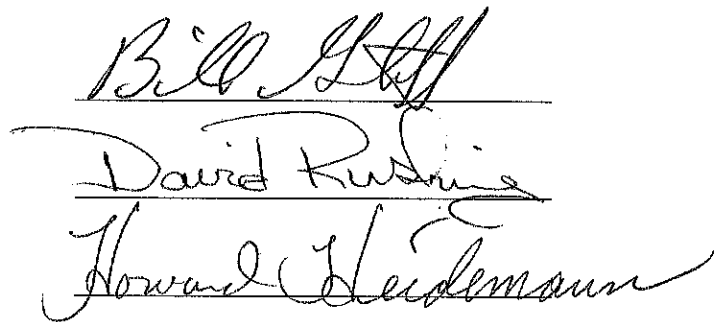 Bill
David Rushing
Howard Heidemann